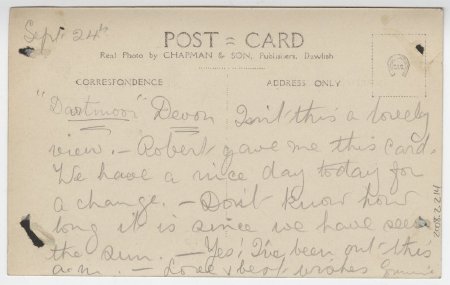 Sept. 24th
POST = CARD
Real Photo by CHAPMAN & SON, Publishers, Dawlish
CORRESPONDENCE
ADDRESS ONLY
"Dartmoor" Devon Isn't this a lovely
view. – Robert gave me this card.
We have a nice day today for
a change. – Don't know how
long it is since we have seen
the sun. – Yes! I've been out this
a.m. – Love & best wishes
2008.2.214